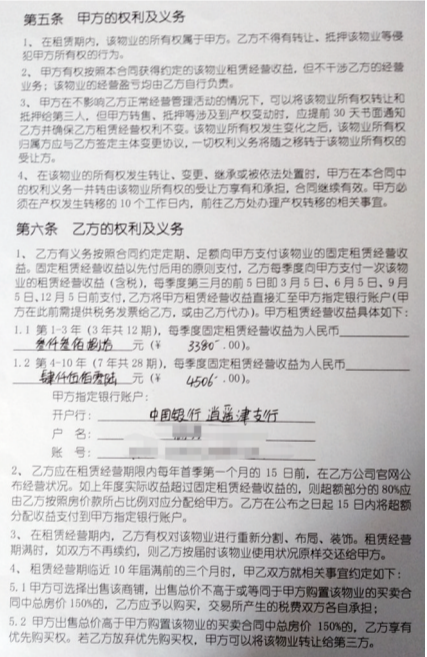 第五条 甲方的权利及义务
1、在租赁期内，该物业的所有权属于甲方。乙方不得有转让、抵押该物业等侵
犯甲方所有权的行为。
2、甲方有权按照本合同获得约定的该物业租赁经营收益，但不干涉乙方的经营
业务；该物业的经营盈亏均由乙方自行负责。
3、甲方在不影响乙方正常经营管理活动的情况下，可以将该物业所有权转让和
抵押给第三人，但甲方转售、抵押等涉及到产权变动时，应提前 30 天书面通知
乙方并确保乙方租赁经营权利不变。该物业所有权发生变化之后，该物业所有权
归属方应与乙方签定主体变更协议，一切权利义务将随之移转于该物业所有权的
受让方。
4、在该物业的所有权发生转让、变更、继承或被依法处置时，甲方在本合同中
的权利义务一并转由该物业所有权的受让方享有和承担，合同继续有效。甲方必
须在产权发生转移的 10 个工作日内，前往乙方处办理产权转移的相关事宜。
第六条 乙方的权利及义务
1、乙方有义务按照合同约定定期、足额向甲方支付该物业的固定租赁经营收
益。固定租赁经营收益以先付后用的原则支付，乙方每季度向甲方支付一次该物
业的租赁经营收益（含税），每季度第三月的前 5 日即 3 月 5 日、6 月 5 日、9 月
5 日、12 月 5 日前支付，乙方将甲方租赁经营收益直接汇至甲方指定银行账户（甲
方在此前需提供税务发票给乙方，或由乙方代办）。甲方租赁经营收益具体如下：
1.1 第 1-3 年（3 年共 12 期），每季度固定租赁经营收益为人民币
叁仟叁佰捌拾 元（¥ 3380 .00）。
1.2 第 4-10 年（7 年共 28 期），每季度固定租赁经营收益为人民币
肆仟伍佰零陆 元（¥ 4506 .00）。
甲方指定银行账户：
开户行： 中国银行 逍遥津支行
户 名：
账 号：
2、乙方应在租赁经营期限内每年首季第一个月的 15 日前，在乙方公司官网公
布经营状况。如上年度实际收益超过固定租赁经营收益的，则超额部分的 80%应
由乙方按照房价款所占比例对应分配给甲方。乙方在公布之日起 15 日内将超额
分配收益支付到甲方指定银行账户。
3、在租赁经营期内，乙方有权对该物业进行重新分割、布局、装饰。租赁经营
期满时，如双方不再续约，则乙方按届时该物业使用状况原样交还给甲方。
4、租赁经营期临近 10 年届满前的三个月时，甲乙双方就相关事宜约定如下：
5.1 甲方可选择出售该商铺，出售总价不高于或等同于甲方购置该物业的买卖合
同中总房价 150%的，乙方应予以购买，交易所产生的税费双方各自承担；
5.2 甲方出售总价高于甲方购置该物业的买卖合同中总房价 150%的，乙方享有
优先购买权。若乙方放弃优先购买权，甲方可以将该物业转让给第三方。